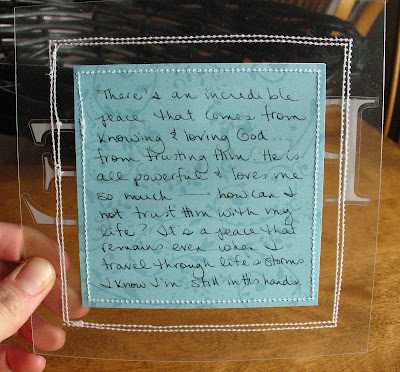 There's an incredible
peace that comes from
knowing & loving God...
from trusting Him. He is
all powerful & loves me
so much — how can I
not trust Him with my
life? It's a peace that
remains even when I
travel through life's storms
I know I'm still in His hands.